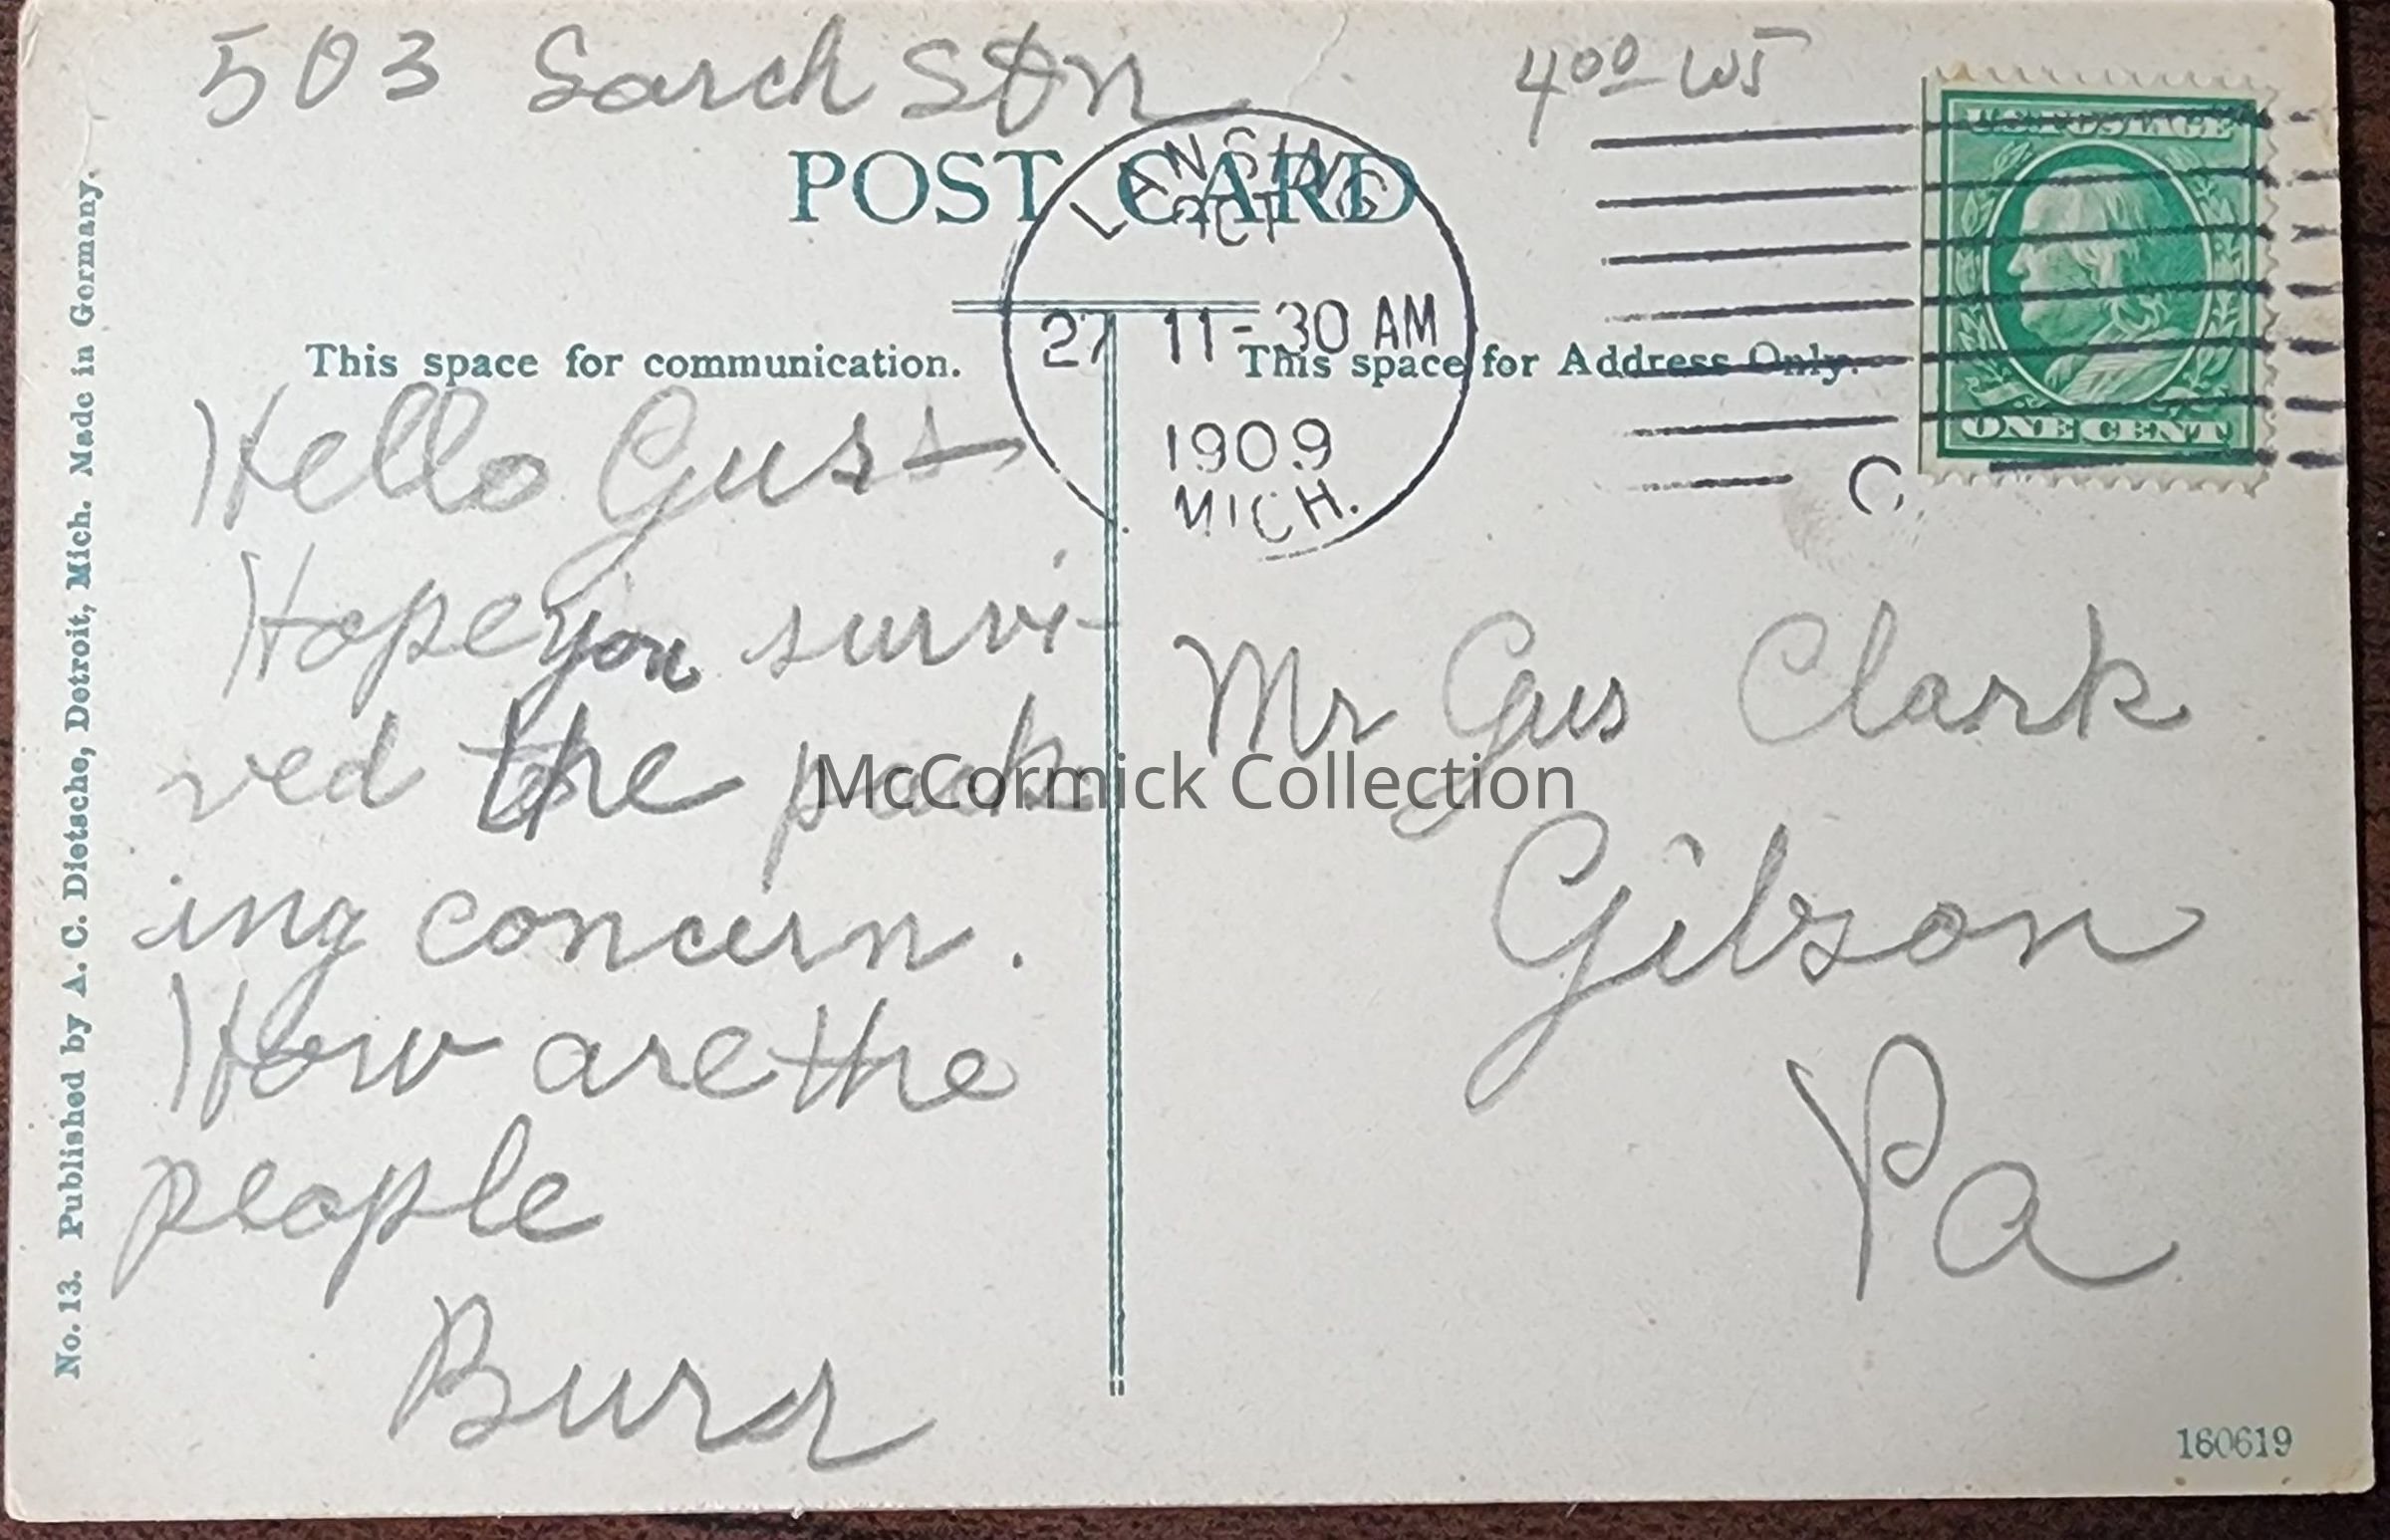 503
4 00 W5
POST CARD
LANSING
OCT
27 11-30 AM
1909
MICH.
U.S. POSTAGE
ONE CENT
This space for communication.
This space for Address Only.
Hello Guss
Hope you survi-
ved the pack
ing concern.
How are the
people
Burr
Mr Gus Clark
Gibson
Pa
McCormick Collection
No. 13. Published by A. C. Dietsche, Detroit, Mich. Made in Germany.
160619